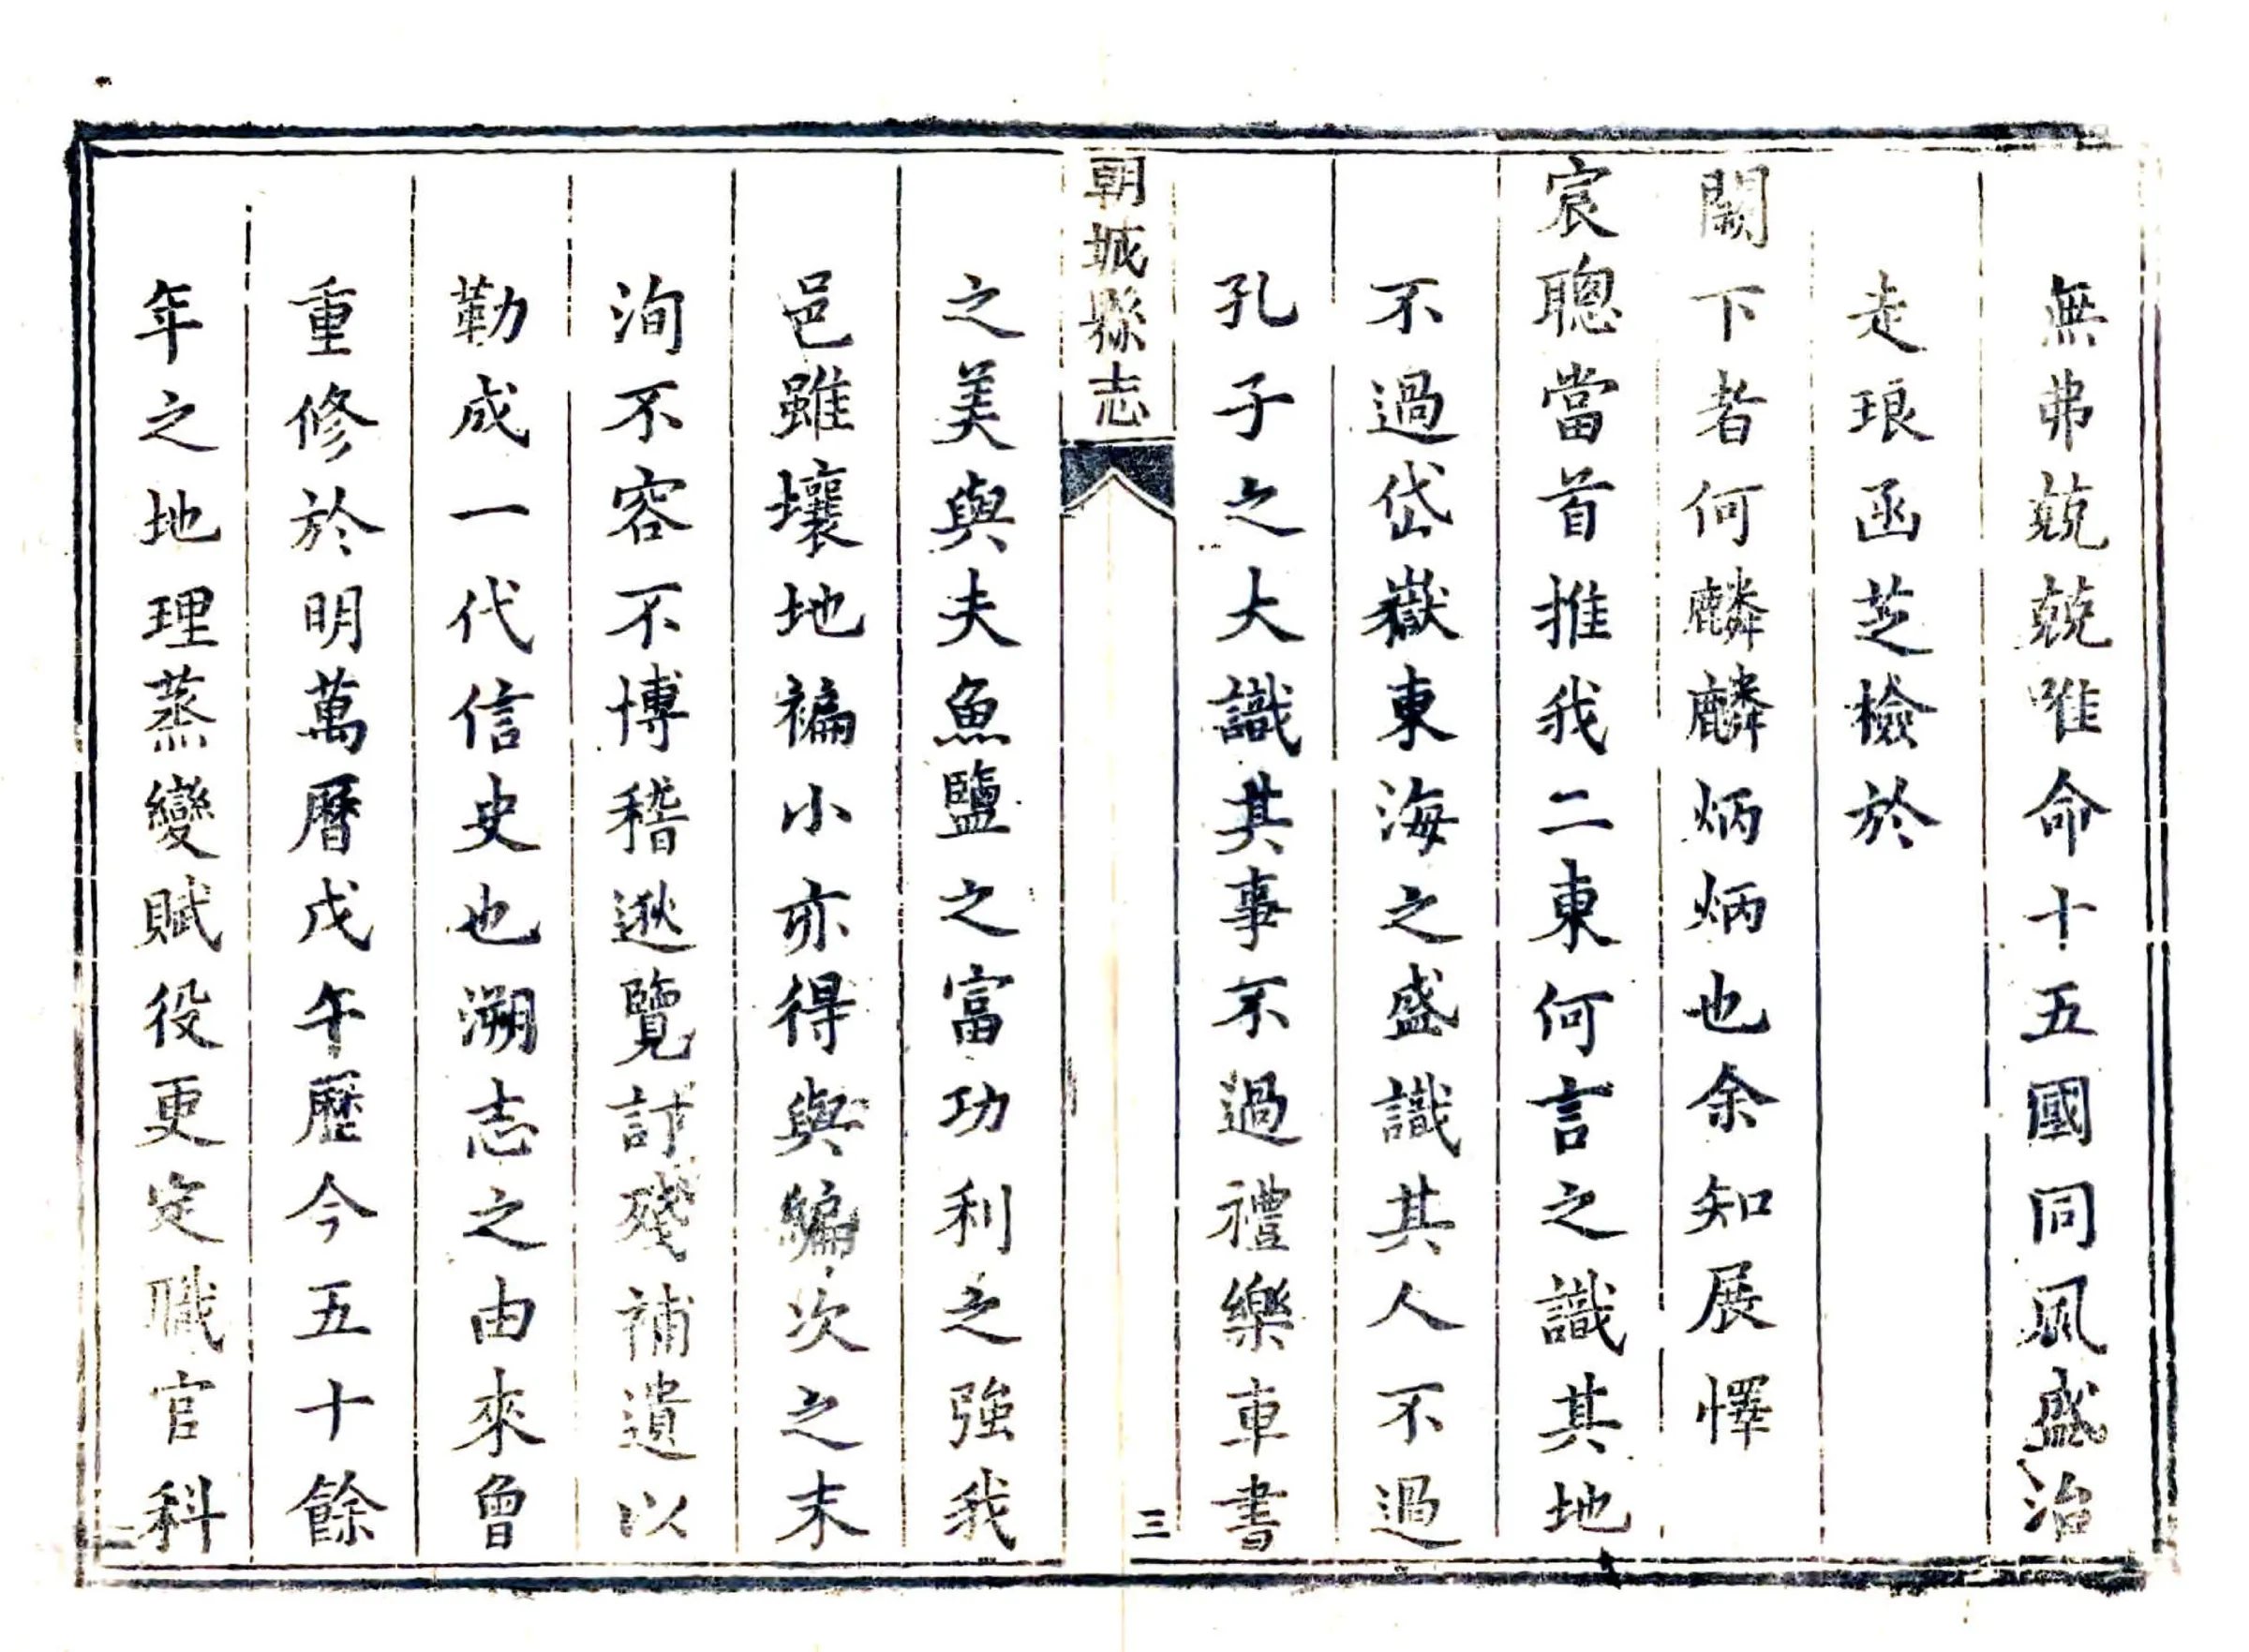 無弗兢兢唯命十五國同風盛治
走琅函芝檢於
闕下者何麟麟炳炳也余知展懌
宸聰當首推我二東何言之識其地
不過岱嶽東海之盛識其人不過
孔子之大識其事不過禮樂車書
朝城縣志
三
之美與夫魚鹽之富功利之強我
邑雖壤地褊小亦得與編次之末
洵不容不博稽遐覽討殘補遺以
勒成一代信史也溯志之由來曾
重修於明萬曆戊午歷今五十餘
年之地理蒸變賦役更定職官科